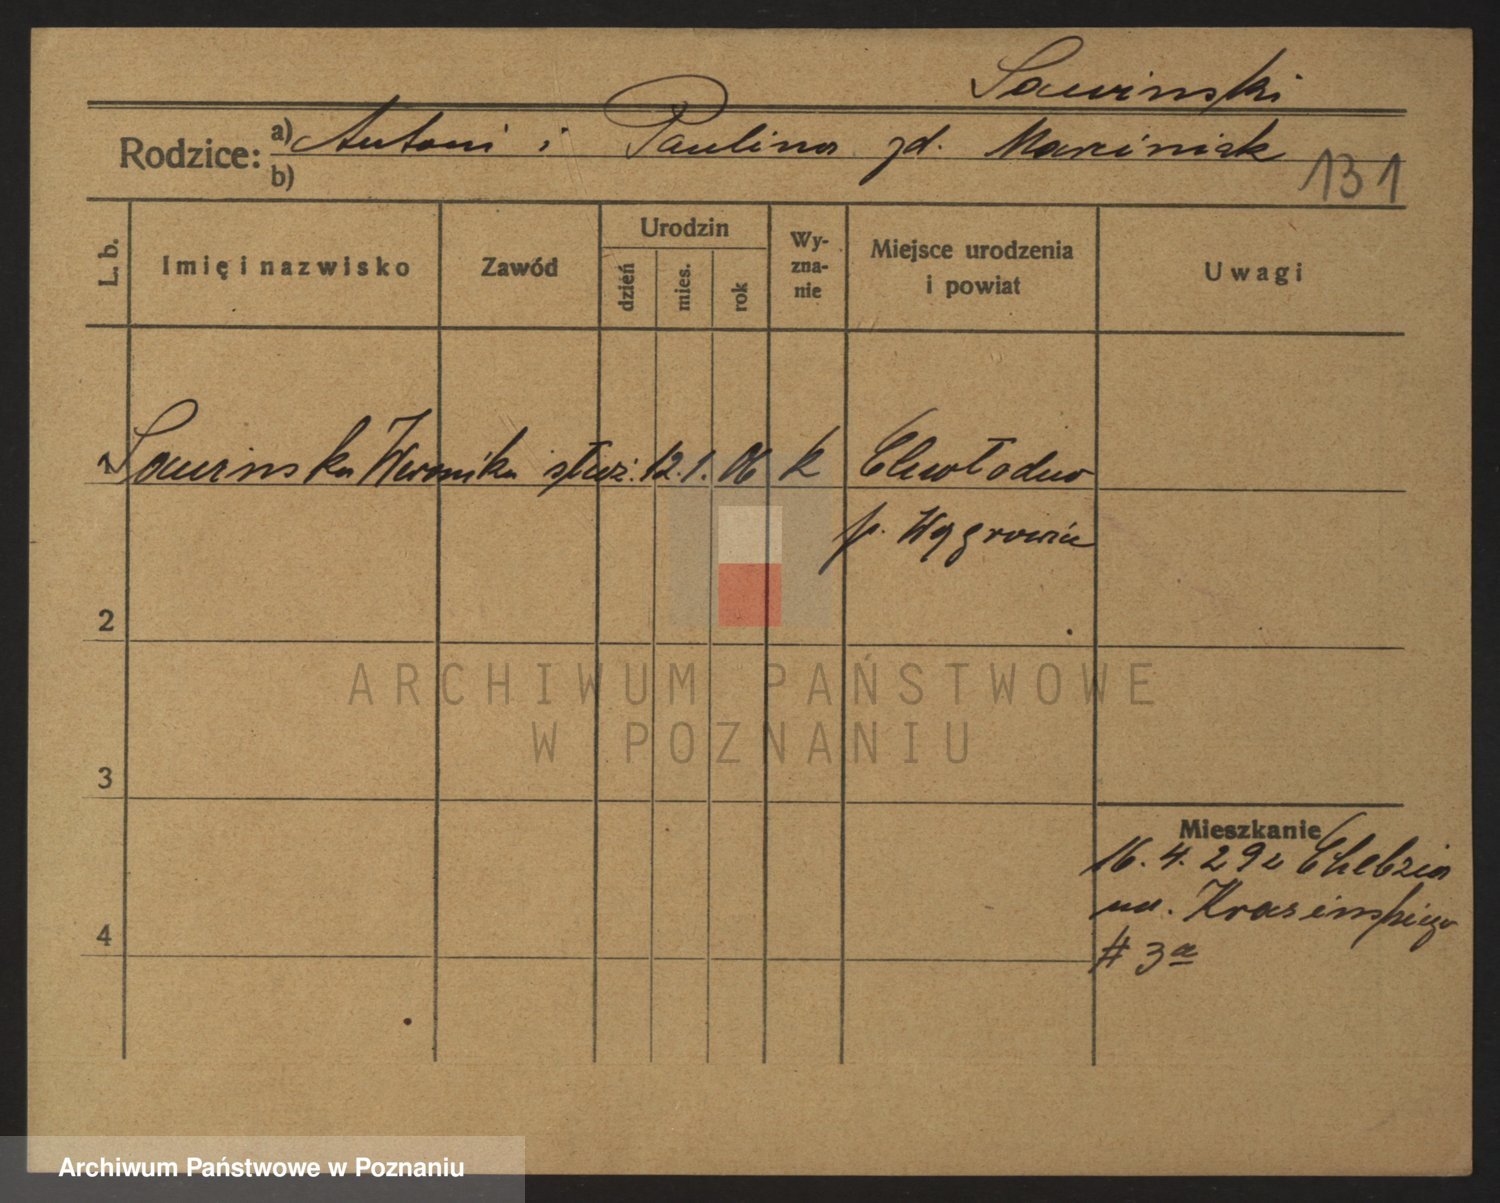 Sowinski
Rodzice: a) Antoni i Paulina zd. Marciniak
b)
131
L. b.
Imię i nazwisko
Zawód
Urodzin
dzień
mies.
rok
Wy-
zna-
nie
Miejsce urodzenia
i powiat
Uwagi
1 Sowinska Weronika służ. 12. 1. 06 k
p. Wągrowiec
2
ARCHIWUM PAŃSTWOWE
W POZNANIU
3
Mieszkanie
16. 4. 29 z
Krasinskiego
4
# 3a
Archiwum Państwowe w Poznaniu